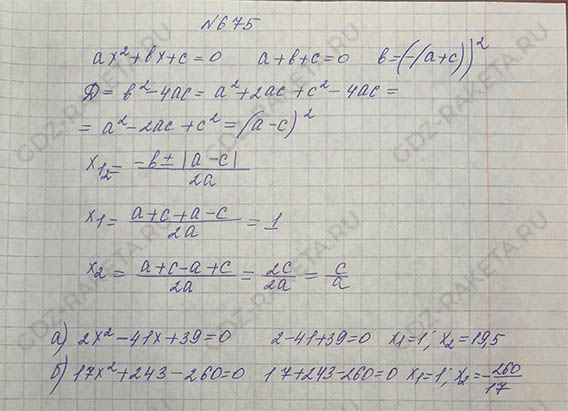 №675
ax²+bx+c=0 a+b+c=0 b=(-(a+c))²
Д= b²-4ac= a²+2ac+c²-4ac=
= a²-2ac+c²=(a-c)²
x₁,₂= -b±|a-c| / 2a
x₁= a+c+a-c / 2a = 1
x₂ = a+c-a+c / 2a = 2c / 2a = c / a
а) 2x²-41x+39=0 2-41+39=0 x₁=1; x₂=19,5
б) 17x²+243-260=0 17+243-260=0 x₁=1; x₂=-260/17
GDZ-RAKETA.RU